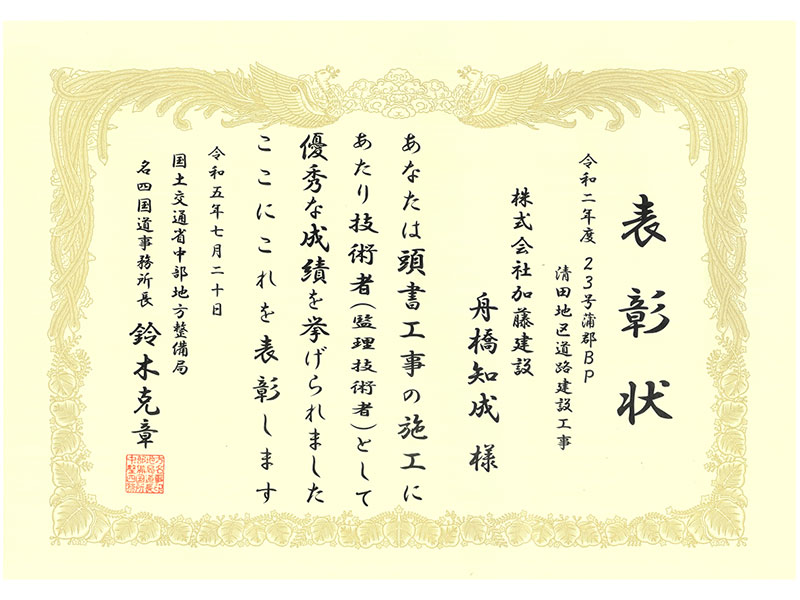 表彰状
令和二年度 23号蒲郡BP
清田地区道路建設工事
株式会社加藤建設
舟橋知成 様
あなたは頭書工事の施工に
あたり技術者(監理技術者)として
優秀な成績を挙げられました
ここにこれを表彰します
令和五年七月二十日
国土交通省中部地方整備局
名四国道事務所長 鈴木克章